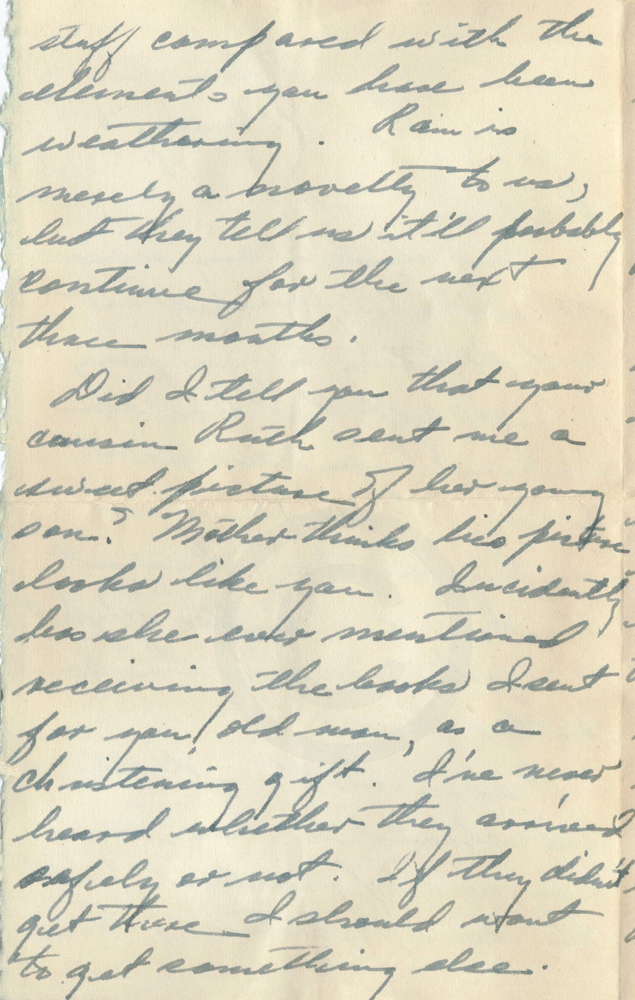 stuff compared with the
elements you have been
weathering. Rain is
merely a novelty to us,
but they tell us it'll probably
continue for the next
three months.
Did I tell you that your
cousin Ruth sent me a
sweet picture of her young
son? Mother thinks his picture
looks like you. Incidently
has she ever mentioned
receiving the books I sent
for you, old man, as a
christening gift. I've never
heard whether they arrived
safely or not. If they didn't
get there I should want
to get something else.